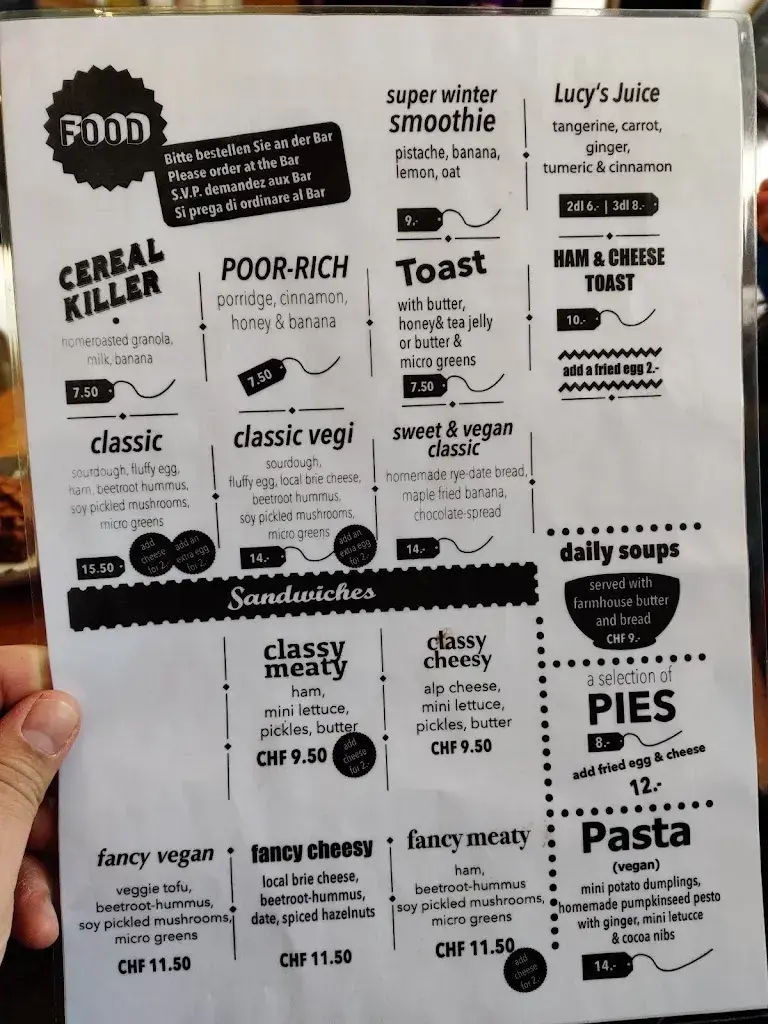 FOOD
Bitte bestellen Sie an der Bar
Please order at the Bar
S.V.P. demandez aux Bar
Si prega di ordinare al Bar
super winter
smoothie
pistache, banana,
lemon, oat
9.-
Lucy's Juice
tangerine, carrot,
ginger,
tumeric & cinnamon
2dl 6.- | 3dl 8.-
CEREAL
KILLER
homeroasted granola,
milk, banana
7.50
POOR-RICH
porridge, cinnamon,
honey & banana
7.50
Toast
with butter,
honey& tea jelly
or butter &
micro greens
7.50
HAM & CHEESE
TOAST
10.-
add a fried egg 2.-
classic
sourdough, fluffy egg,
ham, beetroot hummus,
soy pickled mushrooms,
micro greens
15.50
add
cheese
for 2.-
add an
extra egg
for 2.-
classic vegi
sourdough,
fluffy egg, local brie cheese,
beetroot hummus,
soy pickled mushrooms,
micro greens
14.-
add an
extra egg
for 2.-
sweet & vegan
classic
homemade rye-date bread,
maple fried banana,
chocolate-spread
14.-
Sandwiches
classy
meaty
ham,
mini lettuce,
pickles, butter
CHF 9.50
add
cheese
for 2.-
classy
cheesy
alp cheese,
mini lettuce,
pickles, butter
CHF 9.50
fancy vegan
veggie tofu,
beetroot-hummus,
soy pickled mushrooms,
micro greens
CHF 11.50
fancy cheesy
local brie cheese,
beetroot-hummus,
date, spiced hazelnuts
CHF 11.50
fancy meaty
ham,
beetroot-hummus
soy pickled mushrooms,
micro greens
CHF 11.50
add
cheese
for 2.-
daily soups
served with
farmhouse butter
and bread
CHF 9.-
a selection of
PIES
8.-
add fried egg & cheese
12.-
Pasta
(vegan)
mini potato dumplings,
homemade pumpkinseed pesto
with ginger, mini letucce
& cocoa nibs
14.-